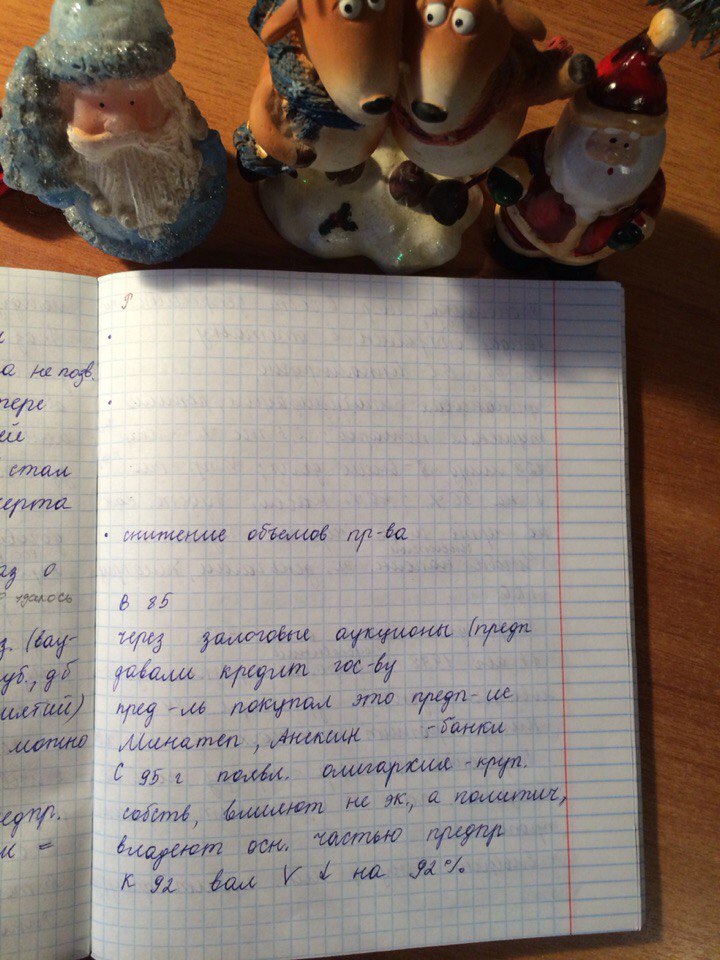 а не позв.
тере
ей
стал
черта
аз о
удалось
з. (вау-
уб., дб
иятий)
можно
едпр.
и =
Р
• снижение объемов пр-ва
В 85
через залоговые аукционы (предп
давали кредит гос-ву
пред-ль покупал это предп-ие
Минатеп, Анексин -банки
С 95 г появл. олигархия -круп.
собств, влияют не эк., а политич,
владеют осн. частью предпр
К 92 вал V ↓ на 92%